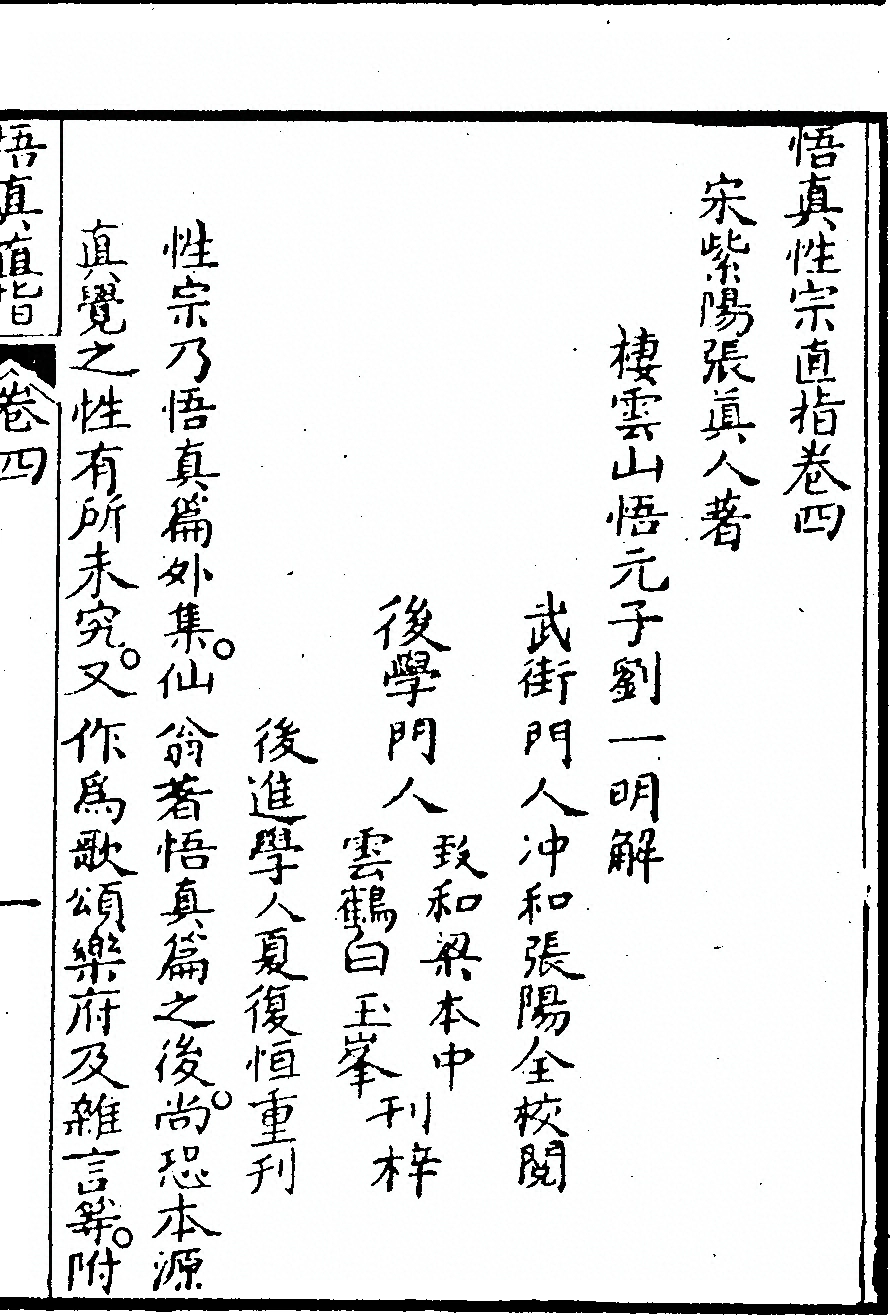 悟真性宗直指卷四
宋紫陽張眞人著
棲雲山悟元子劉一明解
武街門人冲和張陽全校閱
後學門人
致和梁本中
雲鶴白玉峯
刊梓
後進學人夏復恒重刊
性宗乃悟真篇外集。仙翁著悟真篇之後。尚恐本源
真覺之性有所未究。又作爲歌頌樂府及雜言等。附
悟真直指
卷四
一